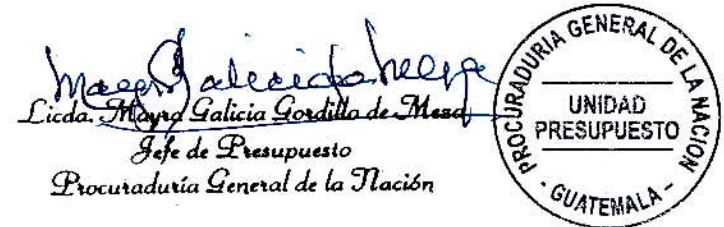 Licda. Mayra Galicia Gordillo de Mesa
Jefe de Presupuesto
Procuraduría General de la Nación
PROCURADURIA GENERAL DE LA NACION
UNIDAD
PRESUPUESTO
- GUATEMALA -